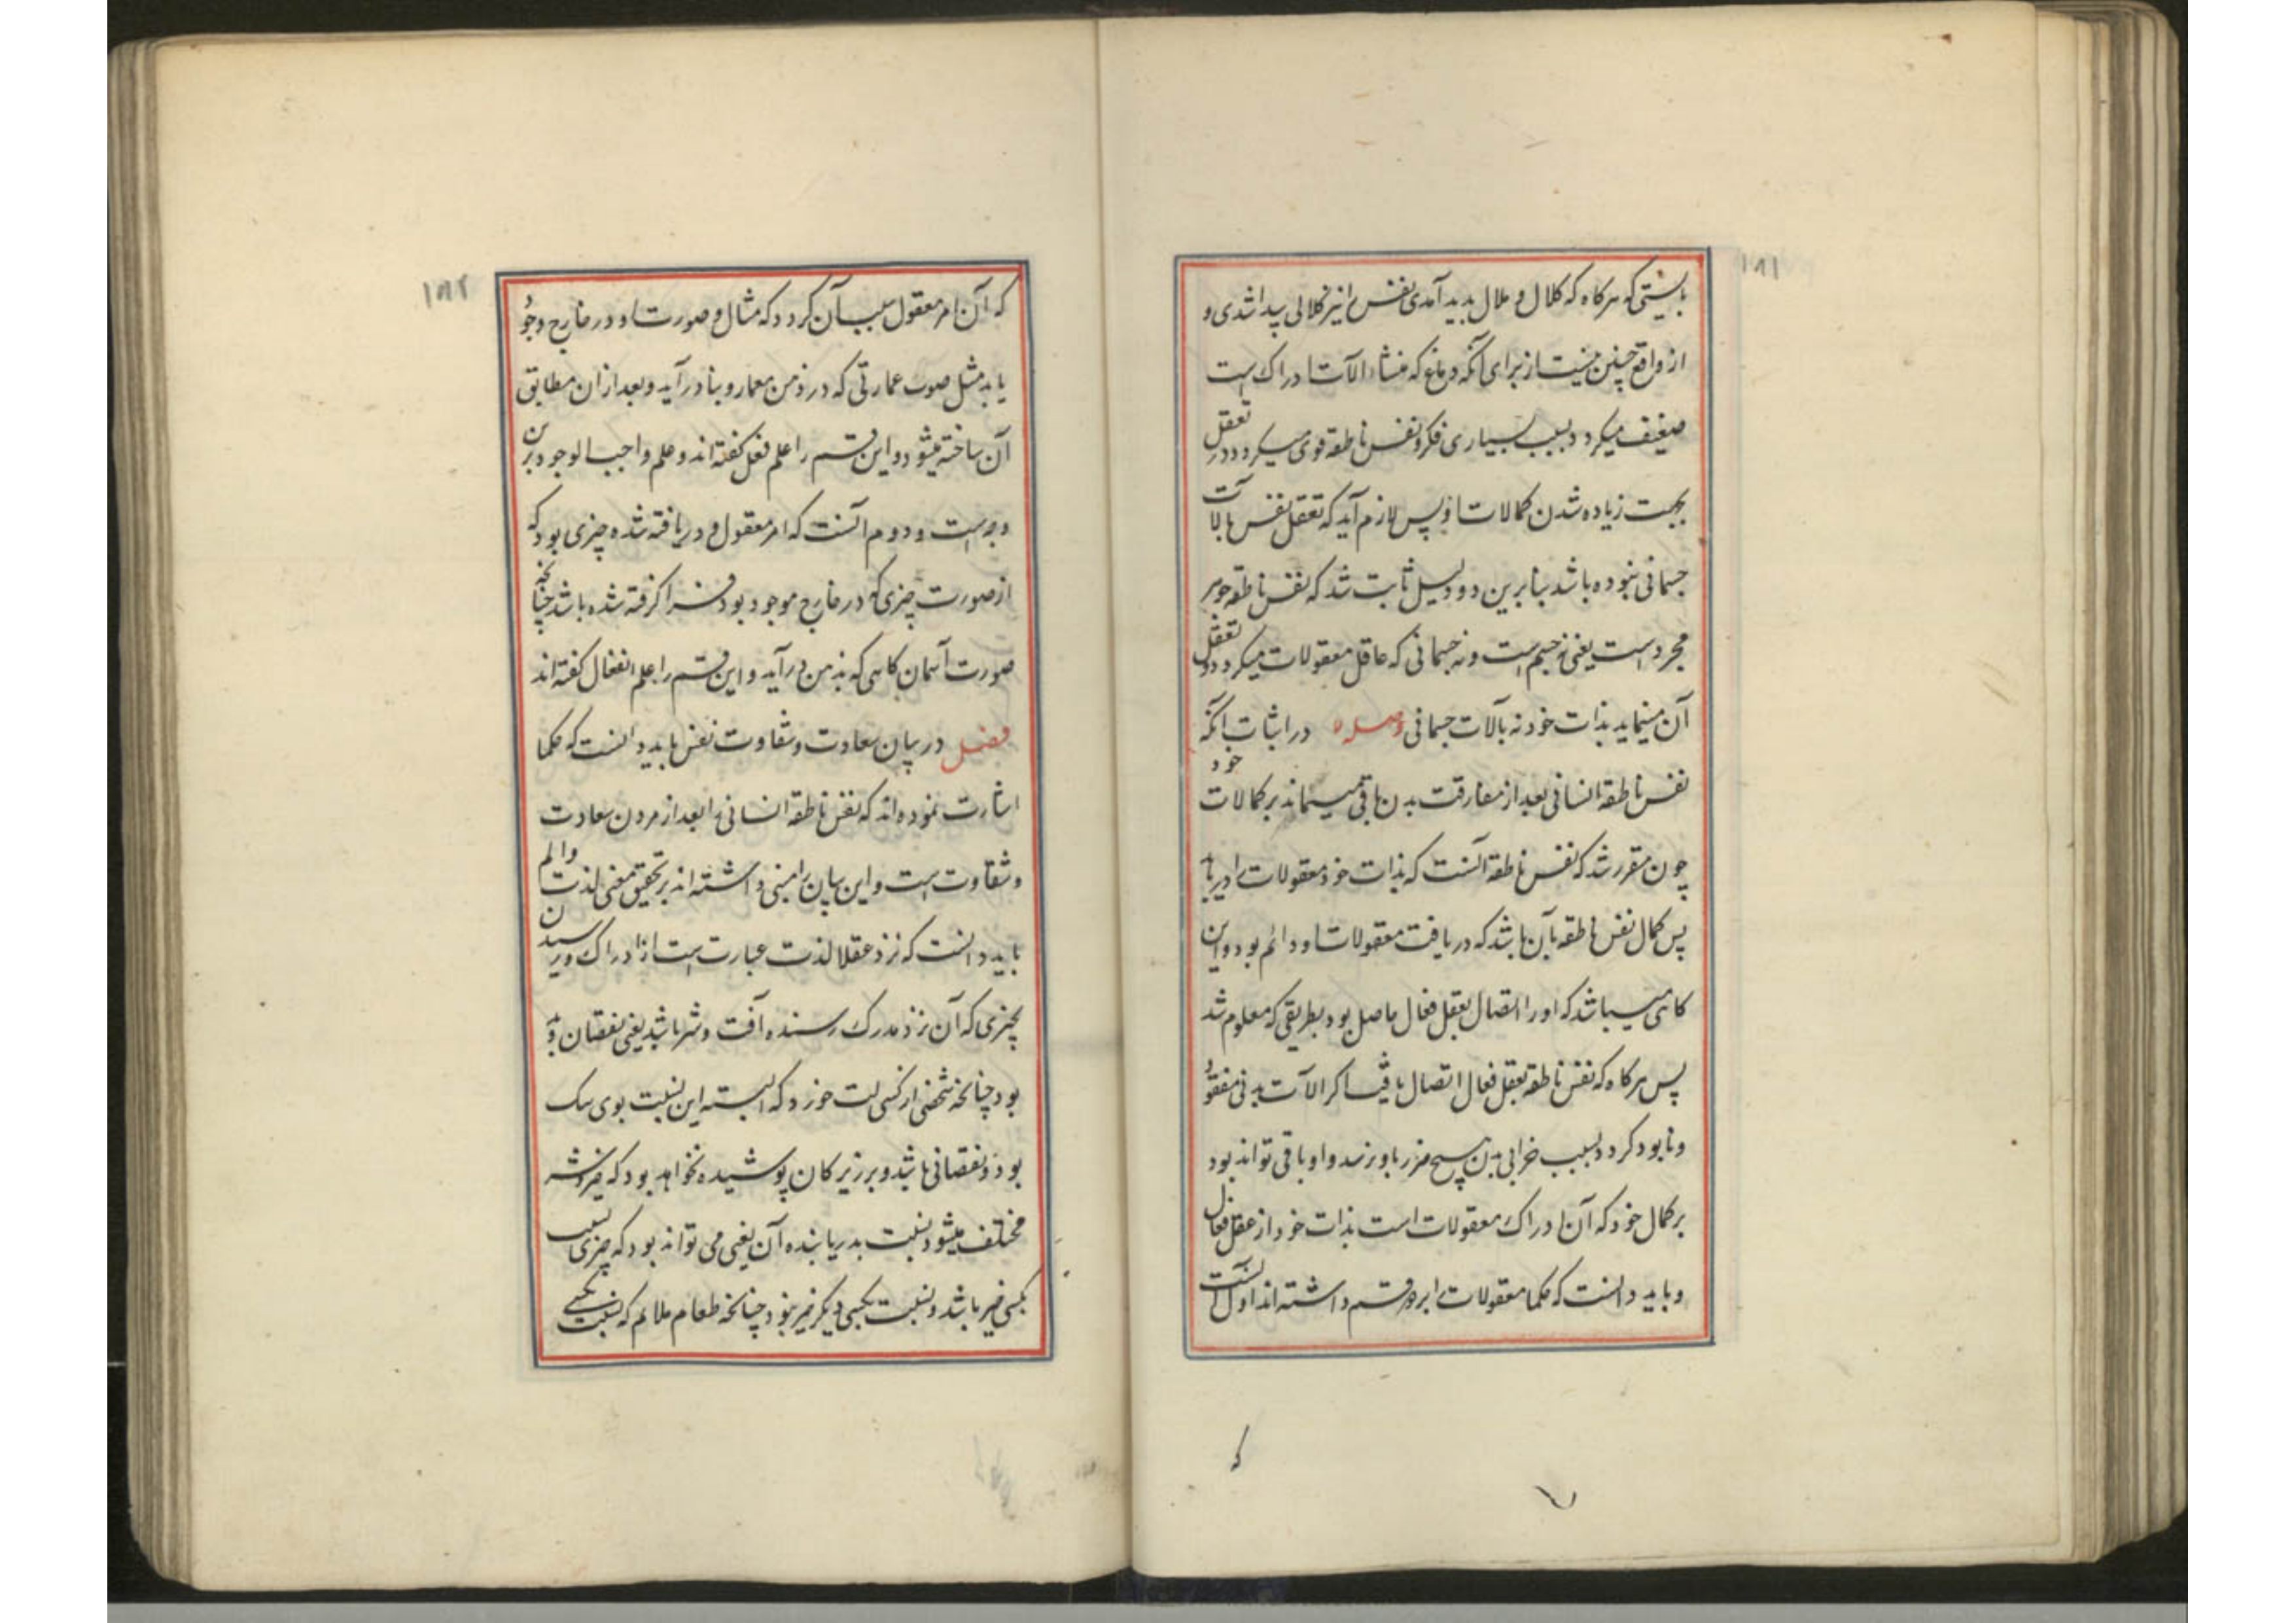 ۱۸۱
بایستی که هرکاه که کلال و ملال بدید آمدی نفس را نیز کلالی پیدا شدی و
از واقع چنین نیست از برای آنکه دماغ که منشاء الات ادراک است
ضعیف میکردد بسبب بسیاری فکر و نفس ناطقه قوی میکردد در تعقل
بجهت زیاده شدن کمالات او پس لازم آید که تعقل نفس بالات
جسمانی نبوده باشد بنابرین دو دلیل ثابت شد که نفس ناطقه جوهر
مجرد است یعنی نه جسم است و نه جسمانی که عاقل معقولات میکردد و تعقل
آن مینماید بذات خود نه بآلات جسمانی در اثبات انکه
نفس ناطقه انسانی بعد از مفارقت بدن باقی میماند بر کمالات خود
چون مقرر شد که نفس ناطقه آنست که بذات خود معقولات را دریابد
پس کمال نفس ناطقه بآن باشد که دریافت معقولات او دائم بود و این
کاهی میباشد که او را اتصال بعقل فعال حاصل بود بطریقی که معلوم شد
پس هرکاه که نفس ناطقه بعقل فعال اتصال یافت اکر الات بدنی مفقود
و نابود کردد بسبب خرابی بدن هیچ ضرر باو نرسد و او باقی تواند بود
بر کمال خود که آن ادراک معقولات است بذات خود از عقل فعال
و باید دانست که حکما معقولات را بر دو قسم داشته اند اول آنست
که
۱۸۲
که آن امر معقول سبب آن کردد که مثال و صورت او در خارج وجود
یابد مثل صورت عمارتی که در ذهن معمار و بنا درآید و بعد از ان مطابق
آن ساخته میشود و این قسم را علم فعل کفته اند و علم واجب الوجود برین
وجه است و دوم آنست که امر معقول و دریافته شده چیزی بود که
از صورت چیزی که در خارج موجود بود فرا کرفته شده باشد چنانچه
صورت آسمان کاهی که بذهن درآید و این قسم را علم انفعال کفته اند
فصل در بیان سعادت و شقاوت نفس باید دانست که حکما
اشارت نموده اند که نفس ناطقه انسانی را بعد از مردن سعادت
و شقاوت است و این بیان را مبنی داشته اند بر تحقیق معنی لذت و الم
باید دانست که نزد عقلا لذت عبارت است از ادراک و رسیدن
بچیزی که آن نزد مدرک رسنده آفت و شر باشد یعنی نقصان
بود چنانچه شخصی از کسی لت خورد که البته این نسبت بوی
بود و نقصانی باشد و بر زیرکان پوشیده نخواهد بود که خیر و شر
مختلف میشود نسبت بدریابنده آن یعنی می تواند بود که چیزی نسبت
بکسی خیر باشد و نسبت بکسی دیکر خیر نبود چنانچه طعام ملایم که نسبت بکسی